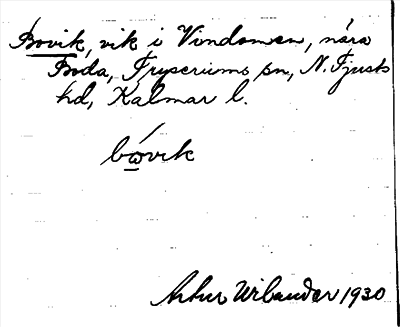 Bovik, vik i Vindomen, nära
Boda, Tryserums sn, N. Tjusts
hd, Kalmar l.
bωvik
Artur Wilander 1930